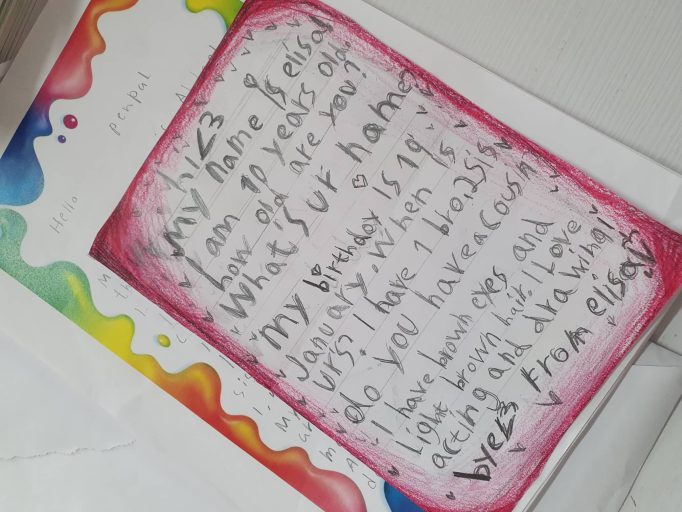 Hello penpal
hi<3
my name is elisa
I am 10 years old.
how old are you?
What's ur name?
my birthday is 19
January. When is
urs? I have 1 bro, 2 sis
do you have a
I have brown eyes and
light brown hair. I Love
acting and drawing!
bye<3 From elisa